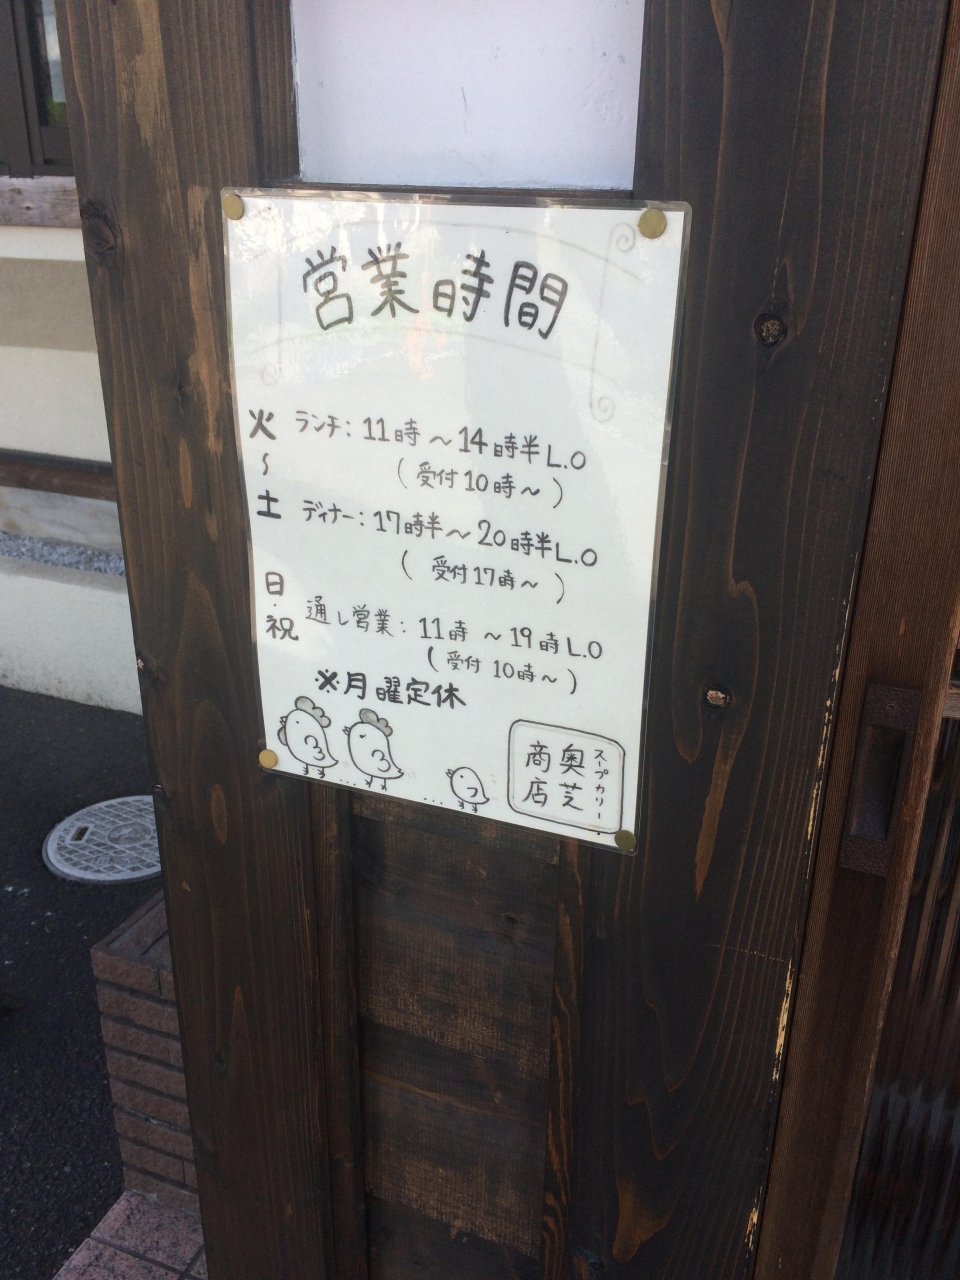 営業時間
火～土
ランチ：11時～14時半L.O
（受付10時～）
ディナー：17時半～20時半L.O
（受付17時～）
日・祝
通し営業：11時～19時L.O
（受付10時～）
※月曜定休
スープカリー
奥芝
商店